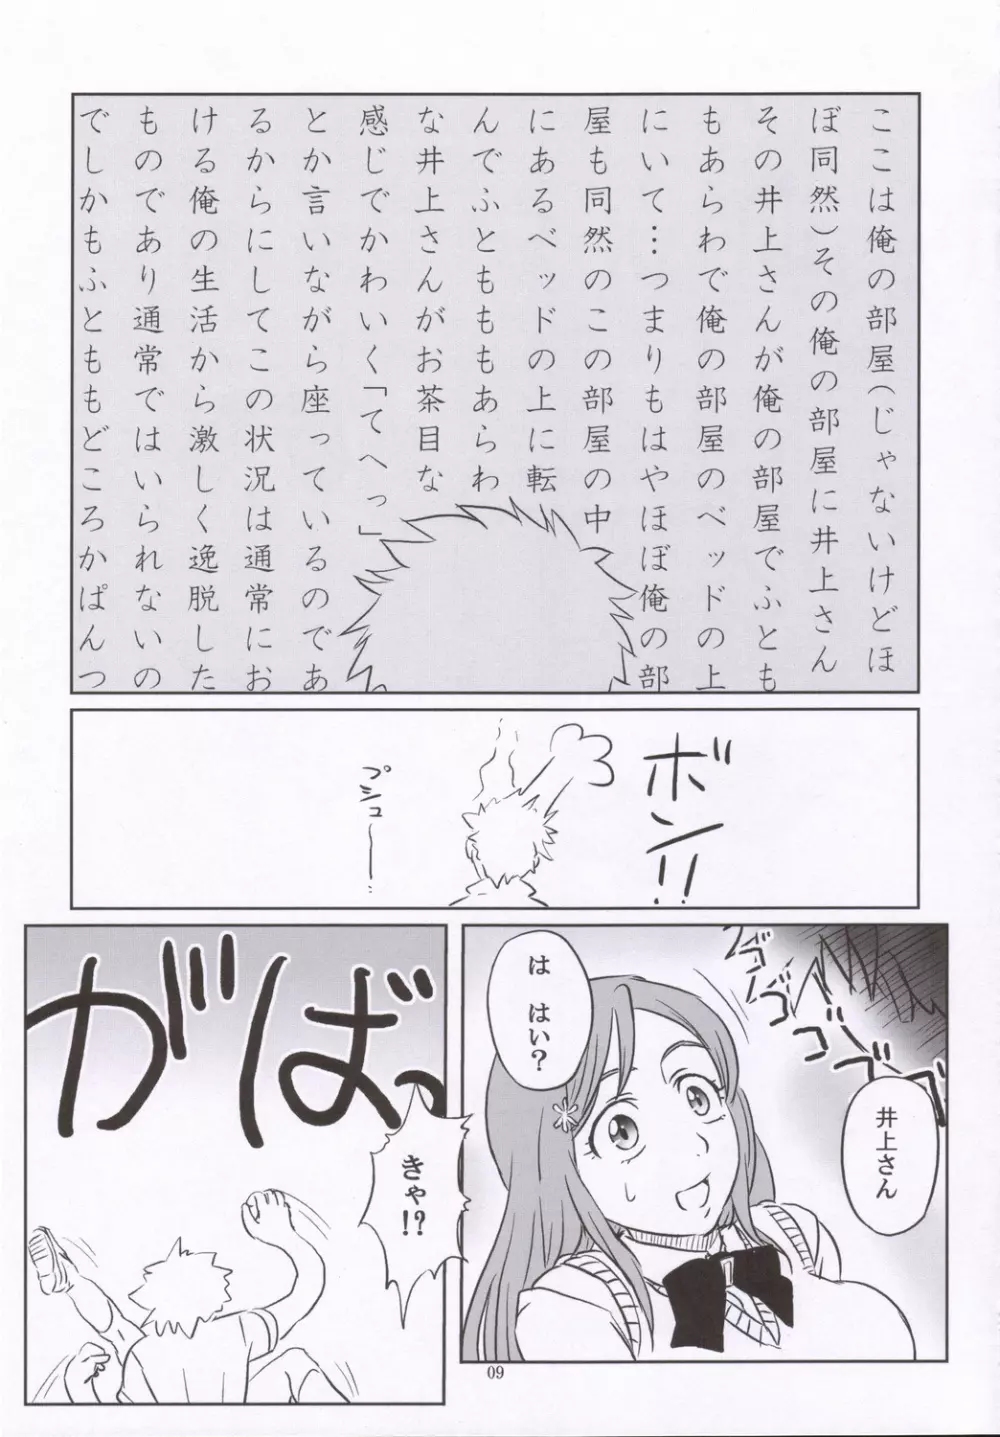 ここは俺の部屋(じゃないけどほ
ぼ同然)その俺の部屋に井上さん
その井上さんが俺の部屋でふとも
もあらわで俺の部屋のベッドの上
にいて…つまりもはやほぼ俺の部
屋も同然のこの部屋の中
にあるベッドの上に転
んでふとももあらわ
な井上さんがお茶目な
感じでかわいく「てへっ」
とか言いながら座っているのであ
るからにしてこの状況は通常にお
ける俺の生活から激しく逸脱した
ものであり通常ではいられないの
でしかもふとももどころかぱんつ
ボン!!
プシュ〜…
井上さん
は はい?
ブゴゴゴブブ
がばっ
きゃ!?
09